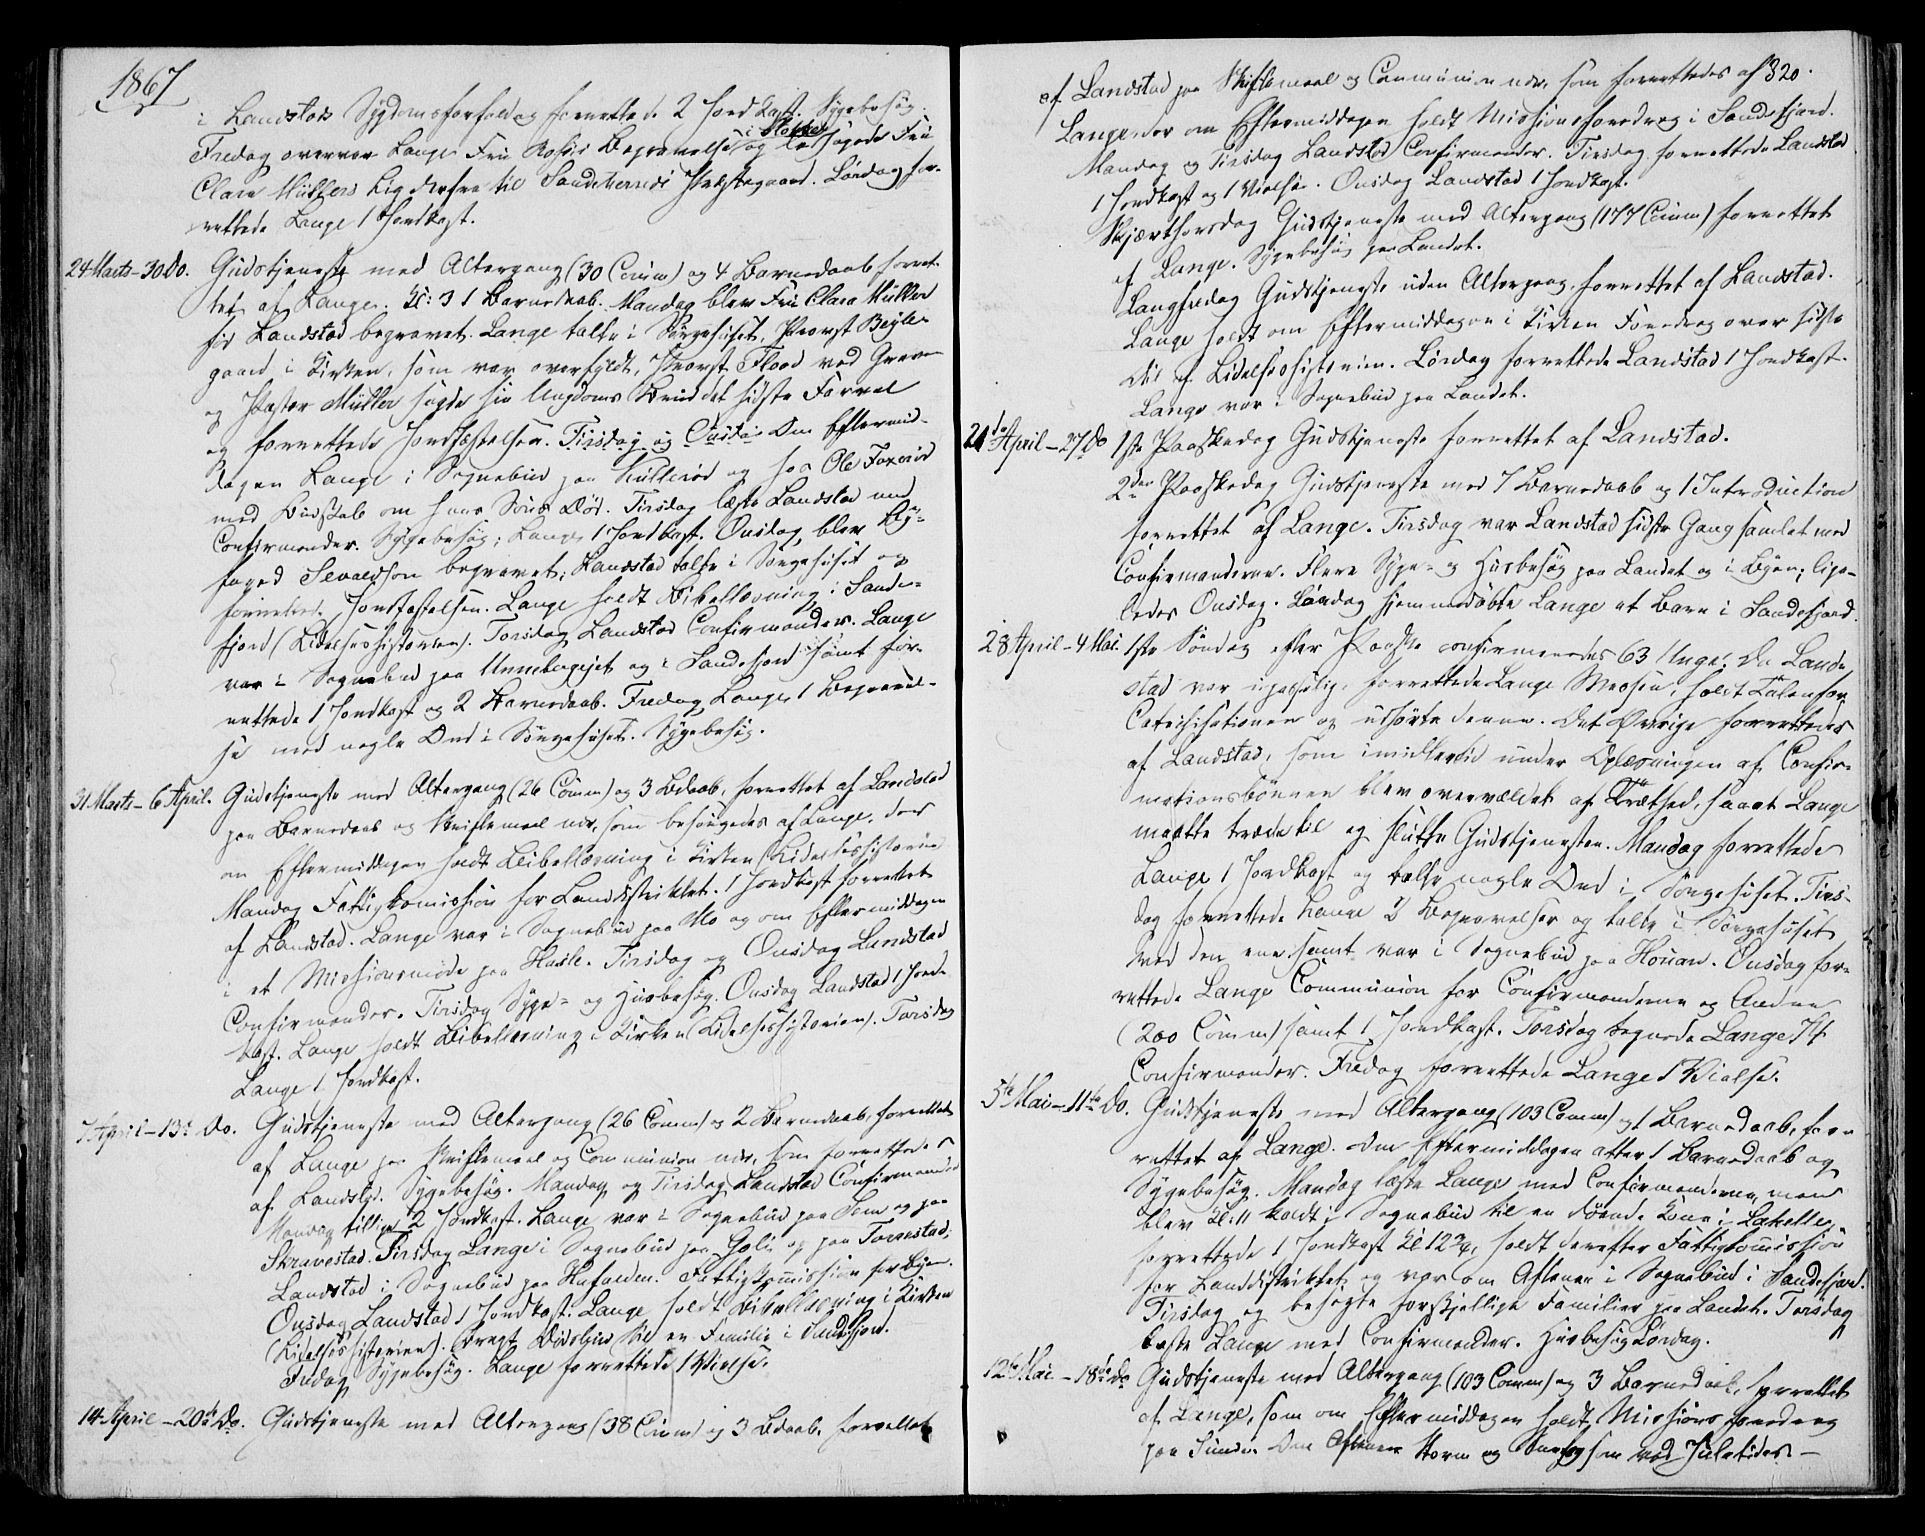 1867
i Landstads Sygdomsforfald og forrettede 2 Jordkast. Sygebesøg.
Fredag overvar Lange Fru Begravelse i Stokke og ledsagede Fru
Clara Müllers Lig derfra til Sandeherreds Præstegaard. Lørdag for-
rettede Lange 1 Jordkast.
24 Marts – 30 Do. Gudstjeneste med Altergang (30 Comm) og 4 Barnedaab, forret-
tet af Lange. Kl: 3 1 Barnedaab. Mandag blev Fru Clara Müller
født Landstad begravet. Lange talte i Sørgehuset, Provst Bejle-
gaard i Kirken, som var overfyldt, Provst Flood ved Graven
og Pastor Müller sagde sin Ungdoms Brud det sidste Farvel
og forrettede Jordfæstelsen. Tirsdag og Onsdag Om Eftermid-
dagen Lange i Sognebud paa Kullerød og hos Ole Foxerød
med Budskab om hans Søns Død. Tirsdag læste Landstad med
Confirmander. Sygebesøg; Lange 1 Jordkast. Onsdag blev By-
foged Sevaldson begravet; Landstad talte i Sørgehuset og
forrettede Jordfæstelsen. Lange holdt Bibellæsning i Sande-
fjord (Lidelseshistorien). Torsdag Landstad Confirmander. Lange
var i Sognebud paa Unneberg og i Sandefjord samt for-
rettede 1 Jordkast og 2 Barnedaab. Fredag Lange 1 Begravel-
se med nogle Ord i Sørgehuset. Sygebesøg.
31 Marts – 6 April. Gudstjeneste med Altergang (26 Comm) og 3 Bdaab, forrettet af Landstad
paa Barnedaab og Skriftemaal nær, som besørgedes af Lange, der
om Eftermiddagen holdt Bibellæsning i Kirken (Lidelseshistorien)
Mandag Fattigkomission for Landdistriktet. 1 Jordkast forrettet
af Landstad. Lange var i Sognebud paa Mo og om Eftermiddagen
i et Missionsmøde paa Hasle. Tirsdag og Onsdag Landstad
Confirmander. Tirsdag Syge- og Husbesøg. Onsdag Landstad 1 Jord-
kast. Lange holdt Bibellæsning i Kirken (Lidelseshistorien). Torsdag
Lange 1 Jordkast.
7 April – 13de Do. Gudstjeneste med Altergang (26 Comm) og 2 Barnedaab, forrettet
af Lange paa Skriftemaal og Communion nær, som forrettedes
af Landstad. Sygebesøg. Mandag og Tirsdag Landstad Confirmander
Mandag tillige 2 Jordkast. Lange var i Sognebud paa Sem og paa
Skravestad. Tirsdag Lange i Sognebud paa Golie og paa Torrestad;
Landstad i Sognebud paa Kufalden. Fattigkomission for Byen.
Onsdag Landstad 1 Jordkast. Lange holdt Bibellæsning i Kirken
(Lidelseshistorien). bragt Dødsbud til en Familie i Sandefjord.
Fredag Sygebesøg. Lange forrettede 1 Vielse.
14 April – 20de Do. Gudstjeneste med Altergang (38 Comm) og 3 Bdaab, forrettet
af Landstad paa Skriftemaal og Communion nær, som forrettedes af 320.
Lange, der om Eftermiddagen holdt Missionsforedrag i Sandefjord.
Mandag og Tirsdag Landstad Confirmander. Tirsdag forrettede Landstad
1 Jordkast og 1 Vielse. Onsdag Landstad 1 Jordkast.
Skjærthorsdag Gudstjeneste med Altergang (177 Comm) forrettet
af Lange. Sygebesøg paa Landet.
Langfredag Gudstjeneste uden Altergang, forrettet af Landstad.
Lange holdt om Eftermiddagen i Kirken Foredrag over sidste
Del af Lidelseshistorien. Lørdag forrettede Landstad 1 Jordkast.
Lange var i Sognebud paa Landet.
21de April – 27 Do 1ste Paaskedag Gudstjeneste forrettet af Landstad.
2den Paaskedag Gudstjeneste med 7 Barnedaab og 1 Introduction
forrettet af Lange. Tirsdag var Landstad sidste Gang samlet med
Confirmanderne. Flere Syge- og Husbesøg paa Landet og i Byen; lige-
ledes Onsdag. Lørdag hjemmedøbte Lange et Barn i Sandefjord.
28 April – 4 Mai. 1ste Søndag efter Paaske confirmeredes 63 Unge. Da Land-
stad var upasselig, forrettede Lange Messen, holdt Talen for
Catechisationen og udførte denne. Det Øvrige forrettedes
af Landstad, som imidlertid under Oplæsningen af Confir-
mationsbønnen blev overvældet af Træthed, saaat Lange
maatte træde til og slutte Gudstjenesten. Mandag forrettede
Lange 1 Jordkast og talte nogle Ord i Sørgehuset. Tirs-
dag forrettede Lange 2 Begravelser og talte i Sørgehuset
ved den ene, samt var i Sognebud paa Houan. Onsdag for-
rettede Lange Communion for Confirmanderne og Andre
(200 Comm) samt 1 Jordkast. Torsdag Lange 74
Confirmander. Fredag forrettede Lange 1 Vielse.
5te Mai – 11te Do. Gudstjeneste med Altergang (103 Comm) og 1 Barnedaab, for-
rettet af Lange. Om Eftermiddagen atter 1 Barnedaab og
Sygebesøg. Mandag læste Lange med Confirmanderne, men
blev Kl: 11 kaldt i Sognebud til en døende Kone i Lakelle,
forrettede 1 Jordkast Kl 12¾, holdt derefter Fattigkomission
for Landdistriktet og var om Aftenen i Sognebud i Sandefjord.
Tirsdag og besøgte forskjellige Familier paa Landet. Torsdag
læste Lange med Confirmander. Husbesøg Lørdag.
12te Mai – 18de Do Gudstjeneste med Altergang (103 Comm) og 3 Barnedaab, forrettet
af Lange, som om Eftermiddagen holdt Missionsforedrag
paa Sunde. Om Aftenen Storm og Snefog som ved Juletider. –